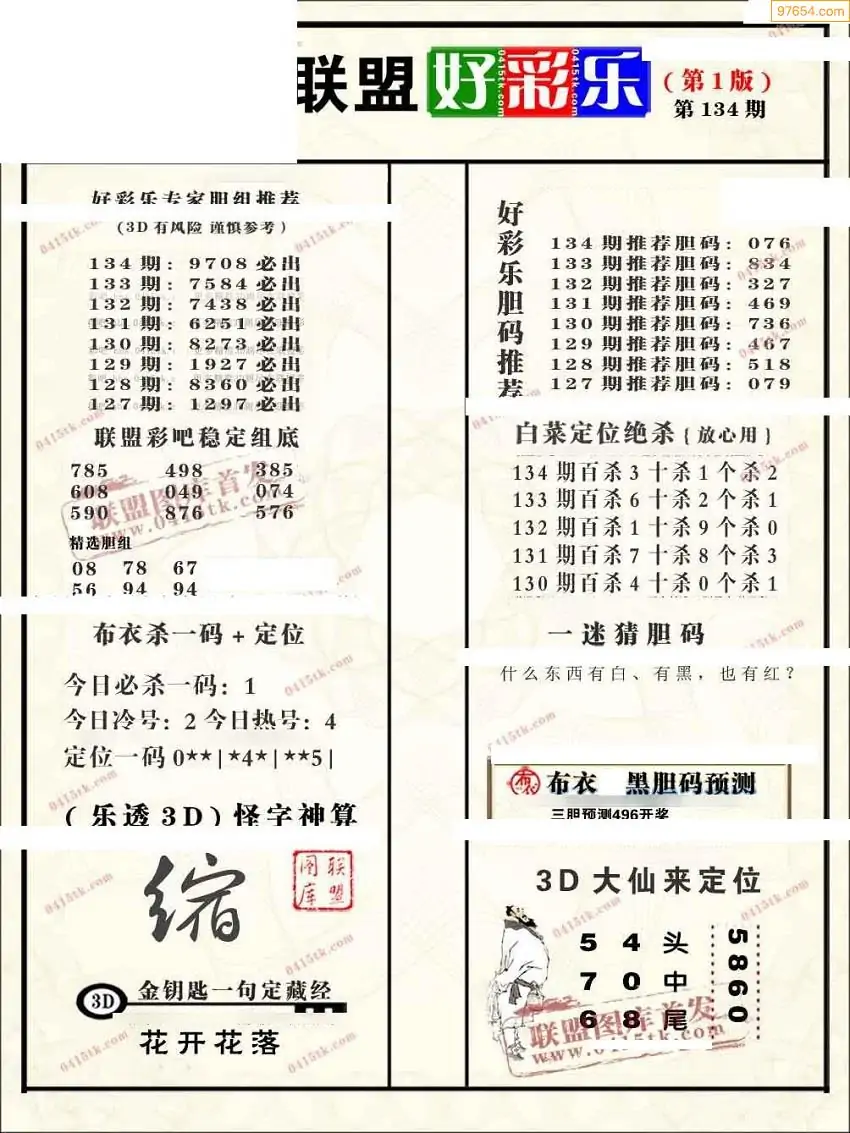 97654.com
联盟好彩乐
(第1版)
第134期
好彩乐专家胆组推荐
(3D有风险 谨慎参考)
134期: 9708必出
133期: 7584必出
132期: 7438必出
131期: 6251必出
130期: 8273必出
129期: 1927必出
128期: 8360必出
127期: 1297必出
联盟彩吧稳定组底
785 498 385
608 049 074
590 876 576
精选胆组
08 78 67
56 94 94
布衣杀一码+定位
今日必杀一码: 1
今日冷号: 2 今日热号: 4
定位一码0**|*4*|**5|
(乐透3D)怪字神算
缩
联盟图库
3D 金钥匙一句定藏经
花开花落
好彩乐胆码推荐
134期推荐胆码: 076
133期推荐胆码: 834
132期推荐胆码: 327
131期推荐胆码: 469
130期推荐胆码: 736
129期推荐胆码: 467
128期推荐胆码: 518
127期推荐胆码: 079
白菜定位绝杀{放心用}
134期百杀3十杀1个杀2
133期百杀6十杀2个杀1
132期百杀1十杀9个杀0
131期百杀7十杀8个杀3
130期百杀4十杀0个杀1
一迷猜胆码
什么东西有白、有黑，也有红?
布衣 黑胆码预测
三胆预测496开奖
3D大仙来定位
5 4 头
7 0 中
6 8 尾
5860
联盟图库首发
www.0415tk.com
0415tk.com